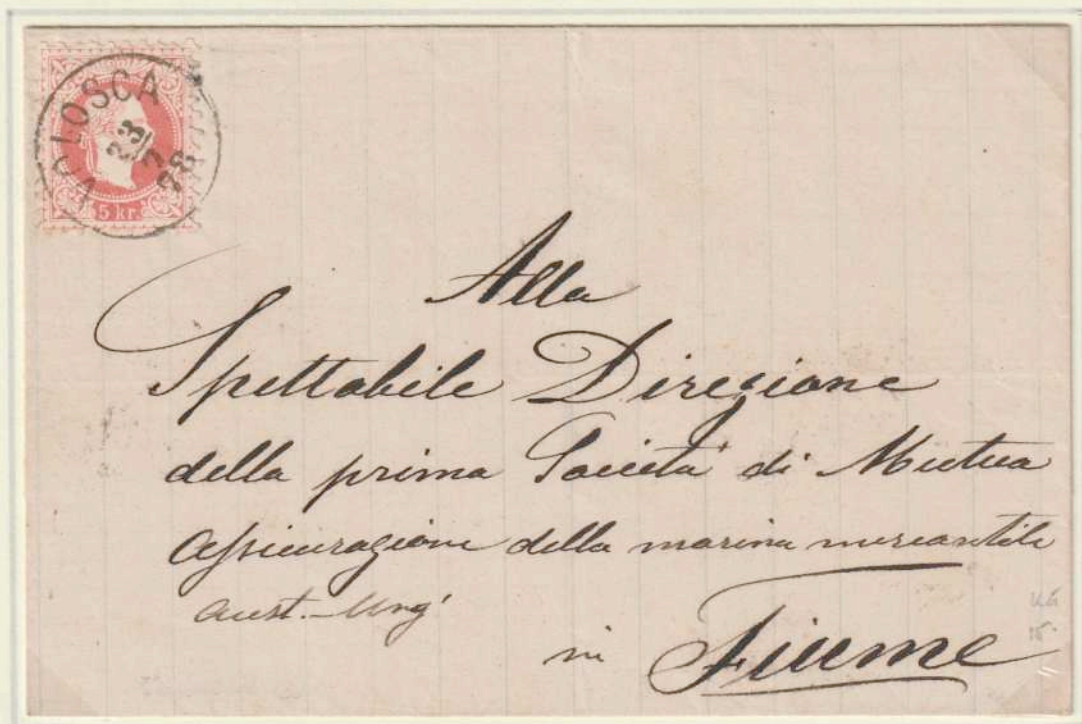 VOLOSCA
23/3
78
5 kr.
Alla
Spettabile Direzione
della prima Società di Mutua
Assicurazione della marina mercantile
Aust.-Ung.
in Fiume